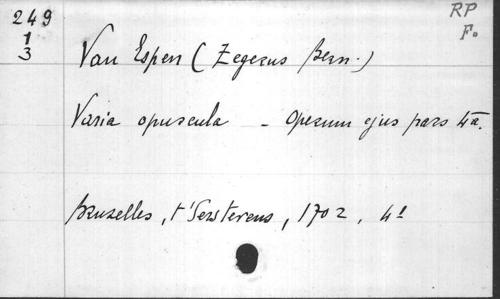 249 RP
1 F.
3
Van Espen (Zegerus Bern.)
Varia opuscula - operum ejus pars 4a.
Bruxelles, t'Serstevens, 1702, 4°